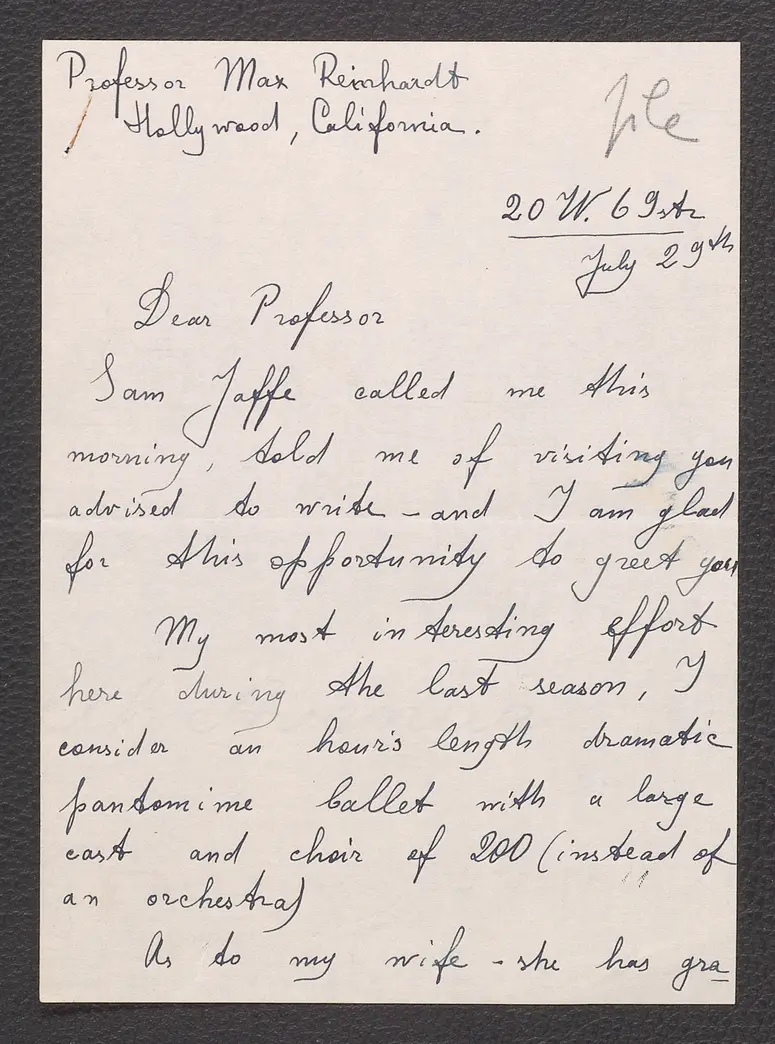 Professor Max Reinhardt
Hollywood, California.
file
20 W. 69 str
July 29th
Dear Professor
Sam Jaffe called me this
morning, told me of visiting you
advised to write - and I am glad
for this opportunity to greet you
My most interesting effort
here during the last season, I
consider an hour's length dramatic
pantomime ballet with a large
cast and choir of 200 (instead of
an orchestra)
As to my wife - she has gra